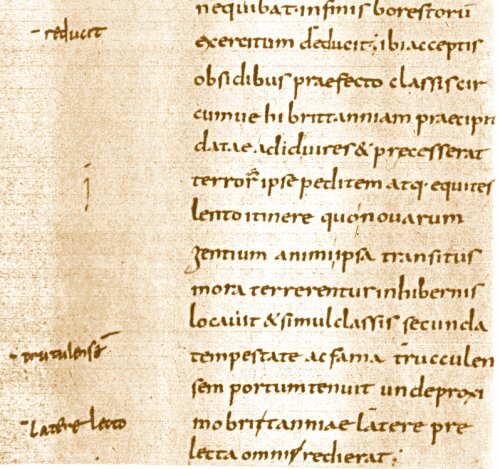 nequibat. infinis borestorū
reducit
exercitum deducit; ibi acceptis
obsidibus praefecto classis cir
cumuehi brittanniam praecipit
datae ad id uires & precesserat
terror ipse peditem atq. equites
lento itinere quo nouarum
gentium animi ipsa transitus
mora terrerentur in hibernis
locauit & simul classis secunda
trutulensē
tempestate ac fama trucculen
sem portum tenuit unde proxi
latere lecto
mo brittanniae latere pre
lecta omni redierat;